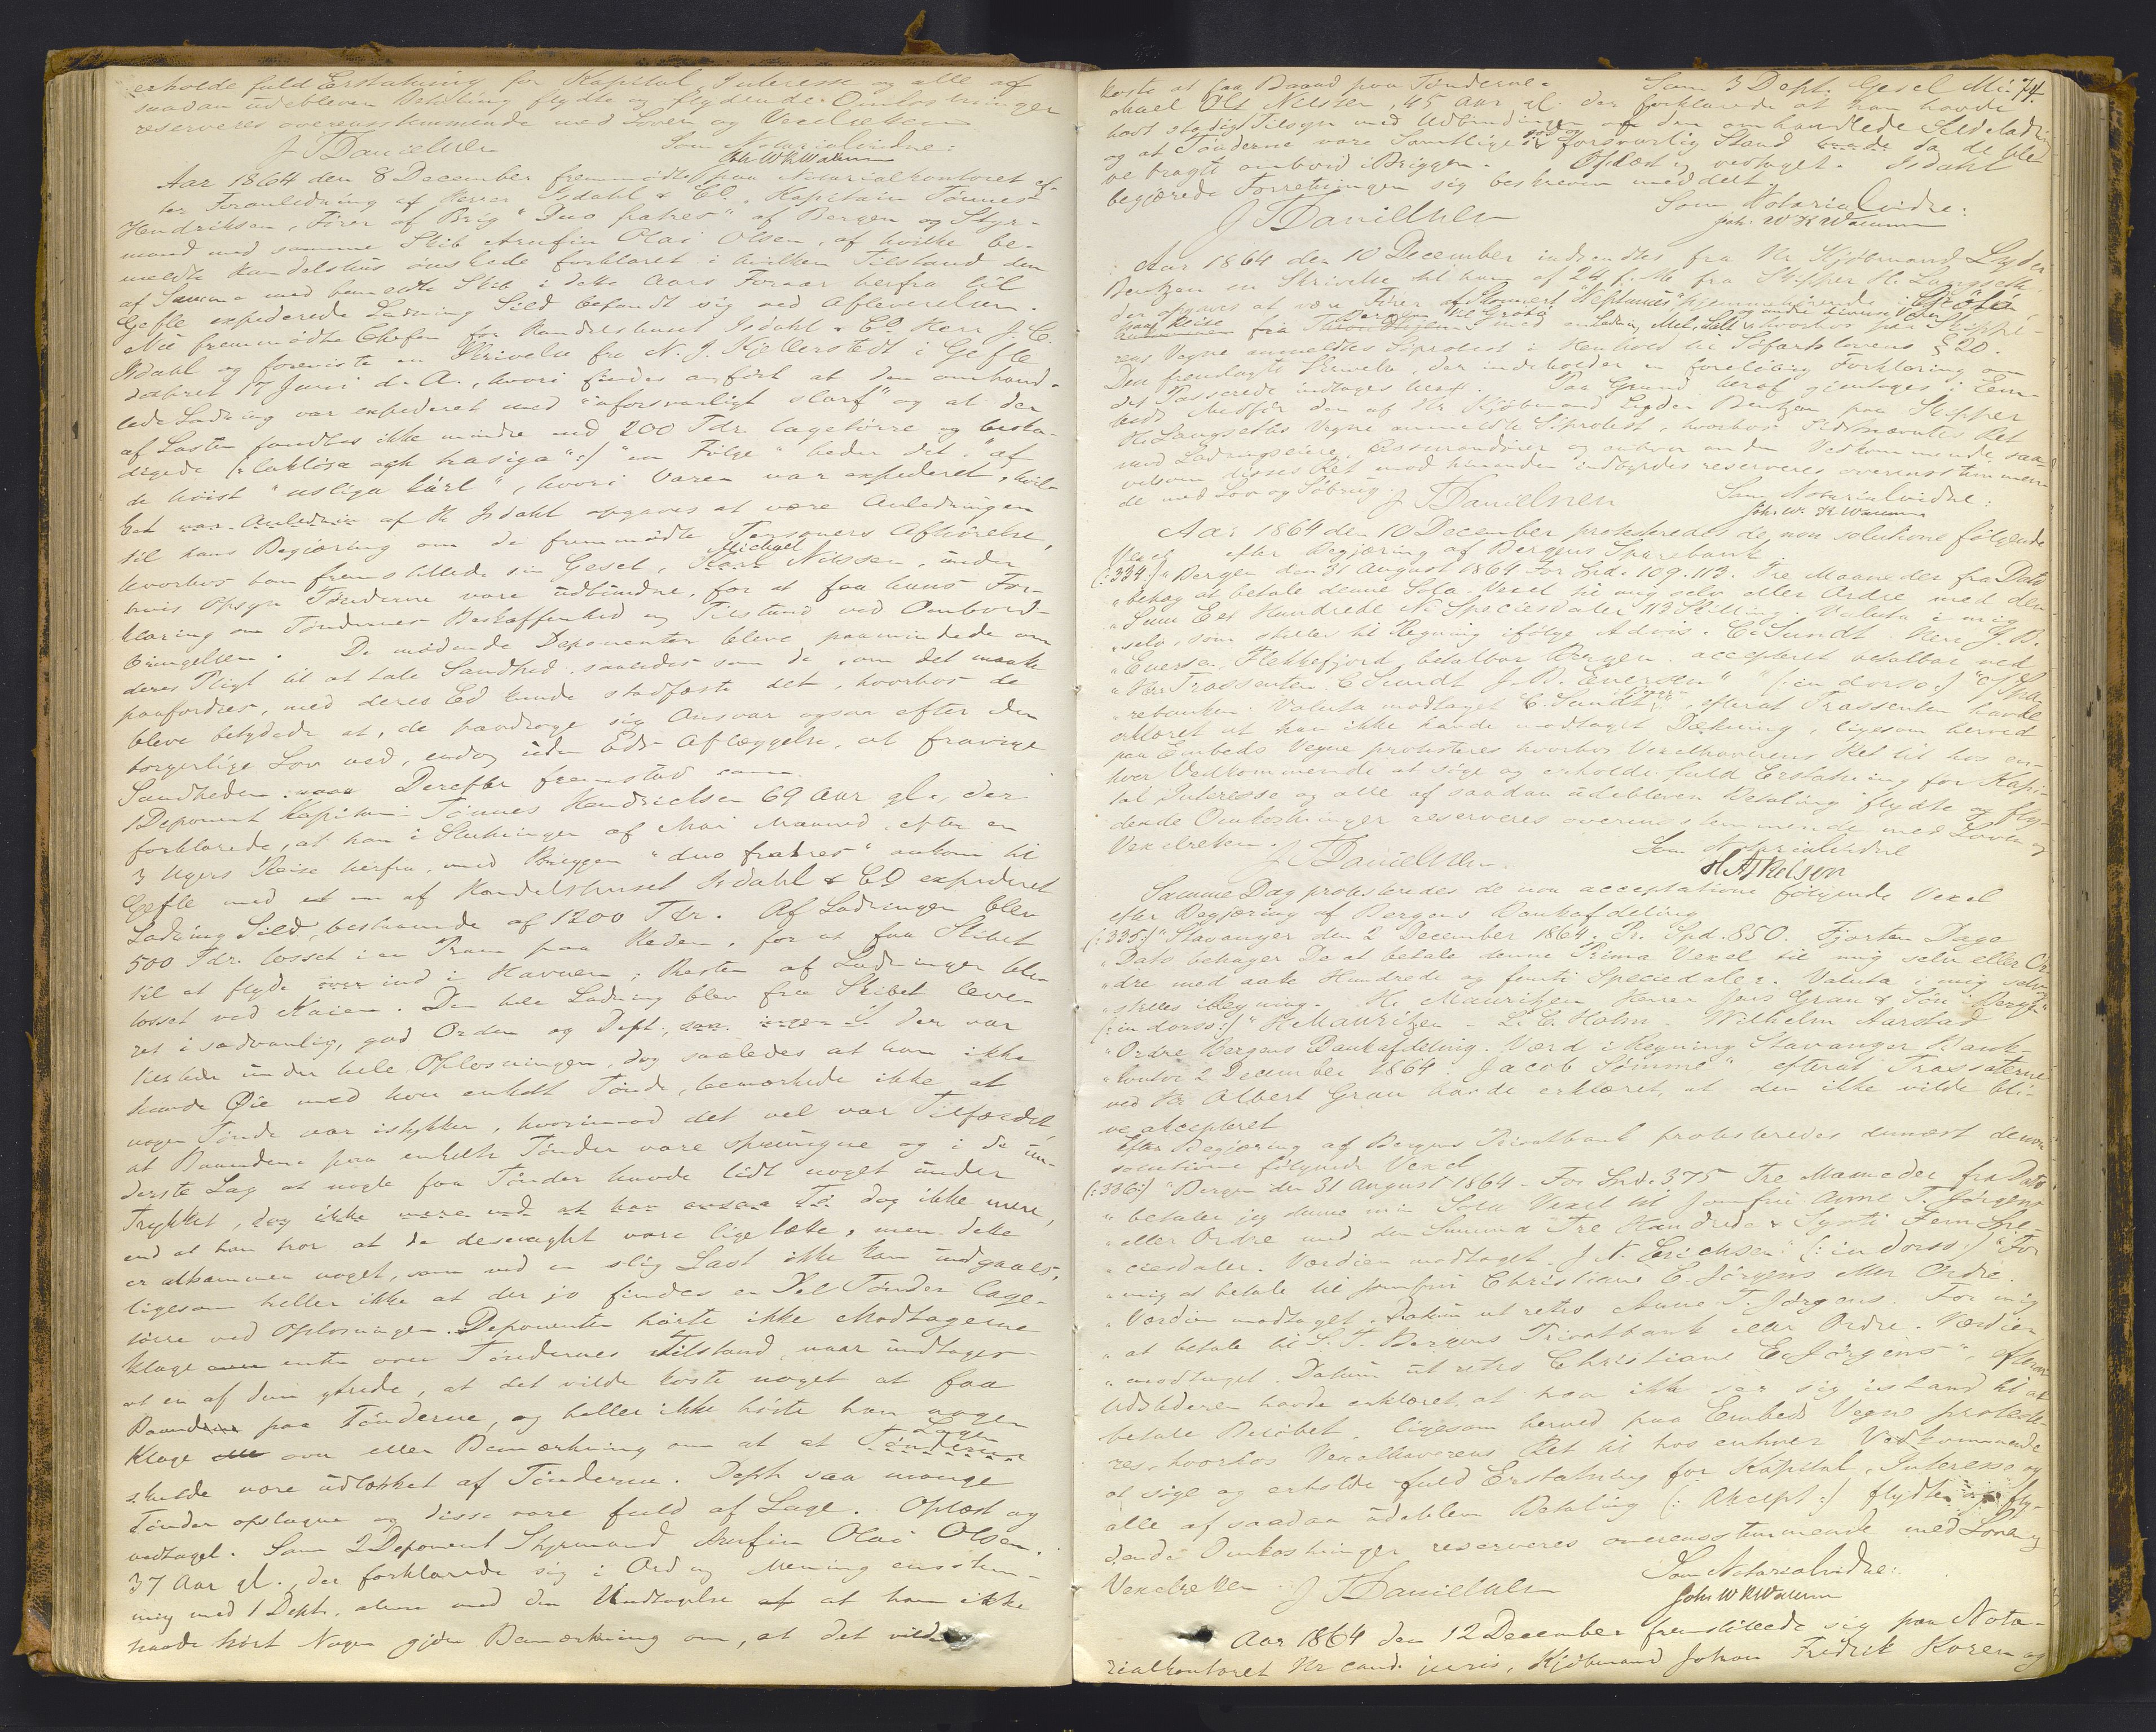 erholde fuld Erstatning for Kapital, Interesse og alle af
saadan udebleven Betaling flydte og flydende Omkostninger
reserveres overensstemmende med Loven og Vexelretten
J Danielsen Som Notarialvidne:
Joh. W K Wallum
Aar 1864 den 8 December fremmødte paa Notarialkontoret ef-
ter Foranledning af Herrer Isdahl & Co, Kapitain Tönnes
Hendriksen, Förer af Brig "Duo fratres" af Bergen og Styr-
mand med samme Skib Arnfin Olai Olsen, af hvilke be-
meldte Handelshus önskede forklaret i hvilken Tilstand den
af Samme med bemeldte Skib i dette Aars Foraar herfra til
Gefle expederede Ladning Sild befandt sig ved Afleverelsen.
Nu fremmødte Chefen for Handelshuset Isdahl & Co Herr J. C.
Isdahl og foreviste en Skrivelse fra N. J. Kjellerstedt i Gefle
dateret 17 Juni d. A., hvori findes anfört at den omhand-
lede Ladning var expederet med "oforsvarligt slarf" og at der
af Lasten fandtes ikke mindre end 200 Tdr. lagetörre og beska-
digede (: laklösa och trasiga :) "en Följe" heder det "af
de höist "usliga kärl", hvori Varen var expederet, hvil-
ket var Anledning af Hr Isdahl opgaves at være Anledningen
til hans Begjæring om de fremmødte Personers Afhörelse,
hvorhos han fremstillede sin Gesel, Karl Michael Nilssen, under
hvis Opsyn Tönderne vare udbundne, for at faa hans For-
klaring om Töndernes Beskaffenhed og Tilstand ved Ombord-
bringelsen. De mødende Deponenter bleve paamindede om
deres Pligt til at tale Sandhed saaledes som de, om det maatte
paafordres, med deres Ed kunde stadfæste det, hvorhos de
bleve betydede at, de paadroge sig Ansvar ogsaa efter den
borgerlige Lov ved, endog uden Eds Aflæggelse, at fravige
Sandheden. Derefter fremstod som
1 Deponent Kapitain Tönnes Hendrichsen 69 Aar gl., der
forklarede, at han i Slutningen af Mai Maaned, efter en
3 Ugers Reise herfra, med Briggen "duo fratres" ankom til
Gefle med en af Handelshuset Isdahl & Co expederet
Ladning Sild, bestaaende af 1200 Tdr. Af Ladningen blev
500 Tdr. losset i en Pram paa Reden, for at faa Skibet
til at flyde over ind i Havnen; Resten af Ladningen blev
losset ved Kaien. Den hele Ladning blev fra Skibet leve-
ret i sædvanlig, god Orden og Dept. der var
tilstede under hele Oplosningen, dog saaledes at han ikke
havde Øie med hver enkelt Tönde, bemærkede ikke at
nogen Tönde var istykker, hvorimod det vel var Tilfældet,
at Baandene paa enkelte Tönder vare sprungne og i de un-
derste Lag at nogle faa Tönder havde lidt noget under
Trykket, dog ikke mere end at han ansaa dog ikke mere,
end at han tror at de desuagtet vare lige tætte, men dette
er altsammen noget, som ved en slig Last ikke kan undgaaes,
ligesom heller ikke at der jo findes en Del Tönder lage-
törre ved Oplosningen. Deponenten hörte ikke Modtagerne
klage enten over Töndernes Tilstand, naar undtages
at en af dem ytrede, at det vilde koste noget at faa
Baand paa Tönderne, og heller ikke hörte han nogen
Klage over eller Bemærkning om at at Lagen Tönderne
skulde være udlækket af Tönderne. Dept. saa mange
Tönder opslagne og disse vare fuld af Lage. Oplæst og
vedtaget. Som 2 Deponent Styrmand Arnfin Olai Olsen,
37 Aar gl. der forklarede sig i Ord og Mening eensstem-
mig med 1 Dept. alene med den Undtagelse af at han ikke
havde hört Nogen gjöre Bemærkning om, at det vilde
74.
koste at faa Baand paa Tönderne. Som 3 Dept. Gesel Mi-
chael Nilssen, 45 Aar gl. der forklarede at han havde
havt stadigt Tilsyn med Udbindingen af den omhandlede Sildeladning
og at Tönderne vare Samtlige i god og forsvarlig Stand da de ble-
ve bragt ombord i Briggen. Oplæst og vedtaget. Isdahl
begjærede Forretningen sig beskreven meddelt.
J Danielsen Som Notarialvidne:
Joh. W K Wallum
Aar 1864 den 10 December indsendtes fra Hr Kjöbmand Lyder
Bentzen en Skrivelse til ham af 24 f. M. fra Skipper H. Langseth
der opgaves at være Förer af Skonnert "Neptunus" hjemmehörende i
paa Reise fra Bergen til med en Ladning Mel, Salt og andre diverse Varer hvorhos paa Skippe-
rens Vegne anmeldtes Söprotest i Henhold til Söfartslovens § 20.
Den fremlagte Skrivelse, der indeholder en foreløbig Forklaring om
det Passerede indtages her. Paa Grund heraf gjentages i Em-
beds Medför den af Hr Kjöbmand Lyder Bentzen paa Skipper
H. Langseths Vegne anmeldte Söprotest, hvorhos Sidstnævntes Ret
mod Ladningseiere, Assurandörer og enhver anden Vedkommende saa-
velsom disses Ret imod hinanden indbyrdes reserveres overensstemmen-
de med Lov og Söbrug. J Danielsen Som Notarialvidne:
Joh. W. K Wallum
Aar 1864 den 10 December protesteredes de non solutione fölgende
Vexel efter Begjæring af Bergens Sparebank
(: 334 :) "Bergen den 31 August 1864 For Spd. 109. 113. Tre Maaneder fra Dato
"behag at betale denne Sola-Vexel til mig selv eller Ordre med den
"Sum Eet Hundrede Ni Speciesdaler 113 Skilling. Valuta i mig
"selv, som stilles til Regning ifölge Advis. C. Sundt. Herr J. B.
"Eversen, Flekkefjord, betalbar Bergen. accepteret betalbar ved
"Hr Trassenten C Sundt J. B. Eversen" (: in dorso :) "Til Spa-
"rebanken. Valuta modtaget C. Sundt", efterat Trassenten havde
erklæret at han ikke havde modtaget Dækning, ligesom herved
paa Embeds Vegne protesteres hvorhos Vexelhaverens Ret til hos en-
hver Vedkommende at söge og erholde fuld Erstatning for Kapi-
tal Interesse og alle af saadan udebleven Betaling flydte og fly-
dende Omkostninger reserveres overensstemmende med Loven og
Vexelretten. J Danielsen Som Notarialvidne
Samme Dag protesteredes de non acceptatione fölgende Vexel
efter Begjæring af Bergens Bankafdeling
(: 335 :) "Stavanger den 2 December 1864. Pr. Spd. 850. Fjorten Dage
"Dato behager De at betale denne Prima Vexel til mig selv eller Or-
"dre med aate Hundrede og femti Speciedaler. Valuta i mig selv og
"stilles i Regning. H. Mauritzen Herrer Jens Gran & Sön Bergen"
(: in dorso :) "H. Mauritzen - L. C. Holm - Wilhelm Aarstad
"Ordre Bergens Bankafdeling. Værd i Regning Stavanger Bank-
"kontor 2 December 1864. Jacob Sömme" efterat Trassaterne
ved Hr Albert Gran havde erklæret, at den ikke vilde bli-
ve akcepteret
Efter Begjæring af Bergens Privatbank protesteredes dernæst de non
solutione fölgende Vexel
(: 336 :) "Bergen den 31 August 1864 - For Spd. 375 Tre Maaneder fra Dato
"betaler jeg denne min Sola Vexel til Jomfru Anne T. Jörgens
"eller Ordre med den Summa Tre Hundrede & Sytti Fem Spe-
"ciesdaler. Værdien modtaget. J. N. Erichsen" (: in dorso :) "For
"mig at betale til Jomfru Christiane E. Jörgens eller Ordre.
"Værdien modtaget. Datum ut retro Anne T. Jörgens. For mig
"at betale til S. T. Bergens Privatbank eller Ordre. Værdien
"modtaget. Datum ut retro Christiane E. Jörgens", efterat
Udstederen havde erklæret, at han ikke saa sig istand til at
betale Belöbet, ligesom herved paa Embeds Vegne proteste-
res, hvorhos Vexelhaverens Ret til hos enhver Vedkommende
at söge og erholde fuld Erstatning for Kapital, Interesse og
alle af saadan udebleven Betaling (: Akcept :) flydte og fly-
dende Omkostninger reserveres overensstemmende med Loven og
Vexelretten J Danielsen Som Notarialvidne:
Joh. W K Wallum
Aar 1864 den 12 December fremstillede sig paa Nota-
rialkontoret Hr cand. juris, Kjöbmand Johan Fredrik Koren og